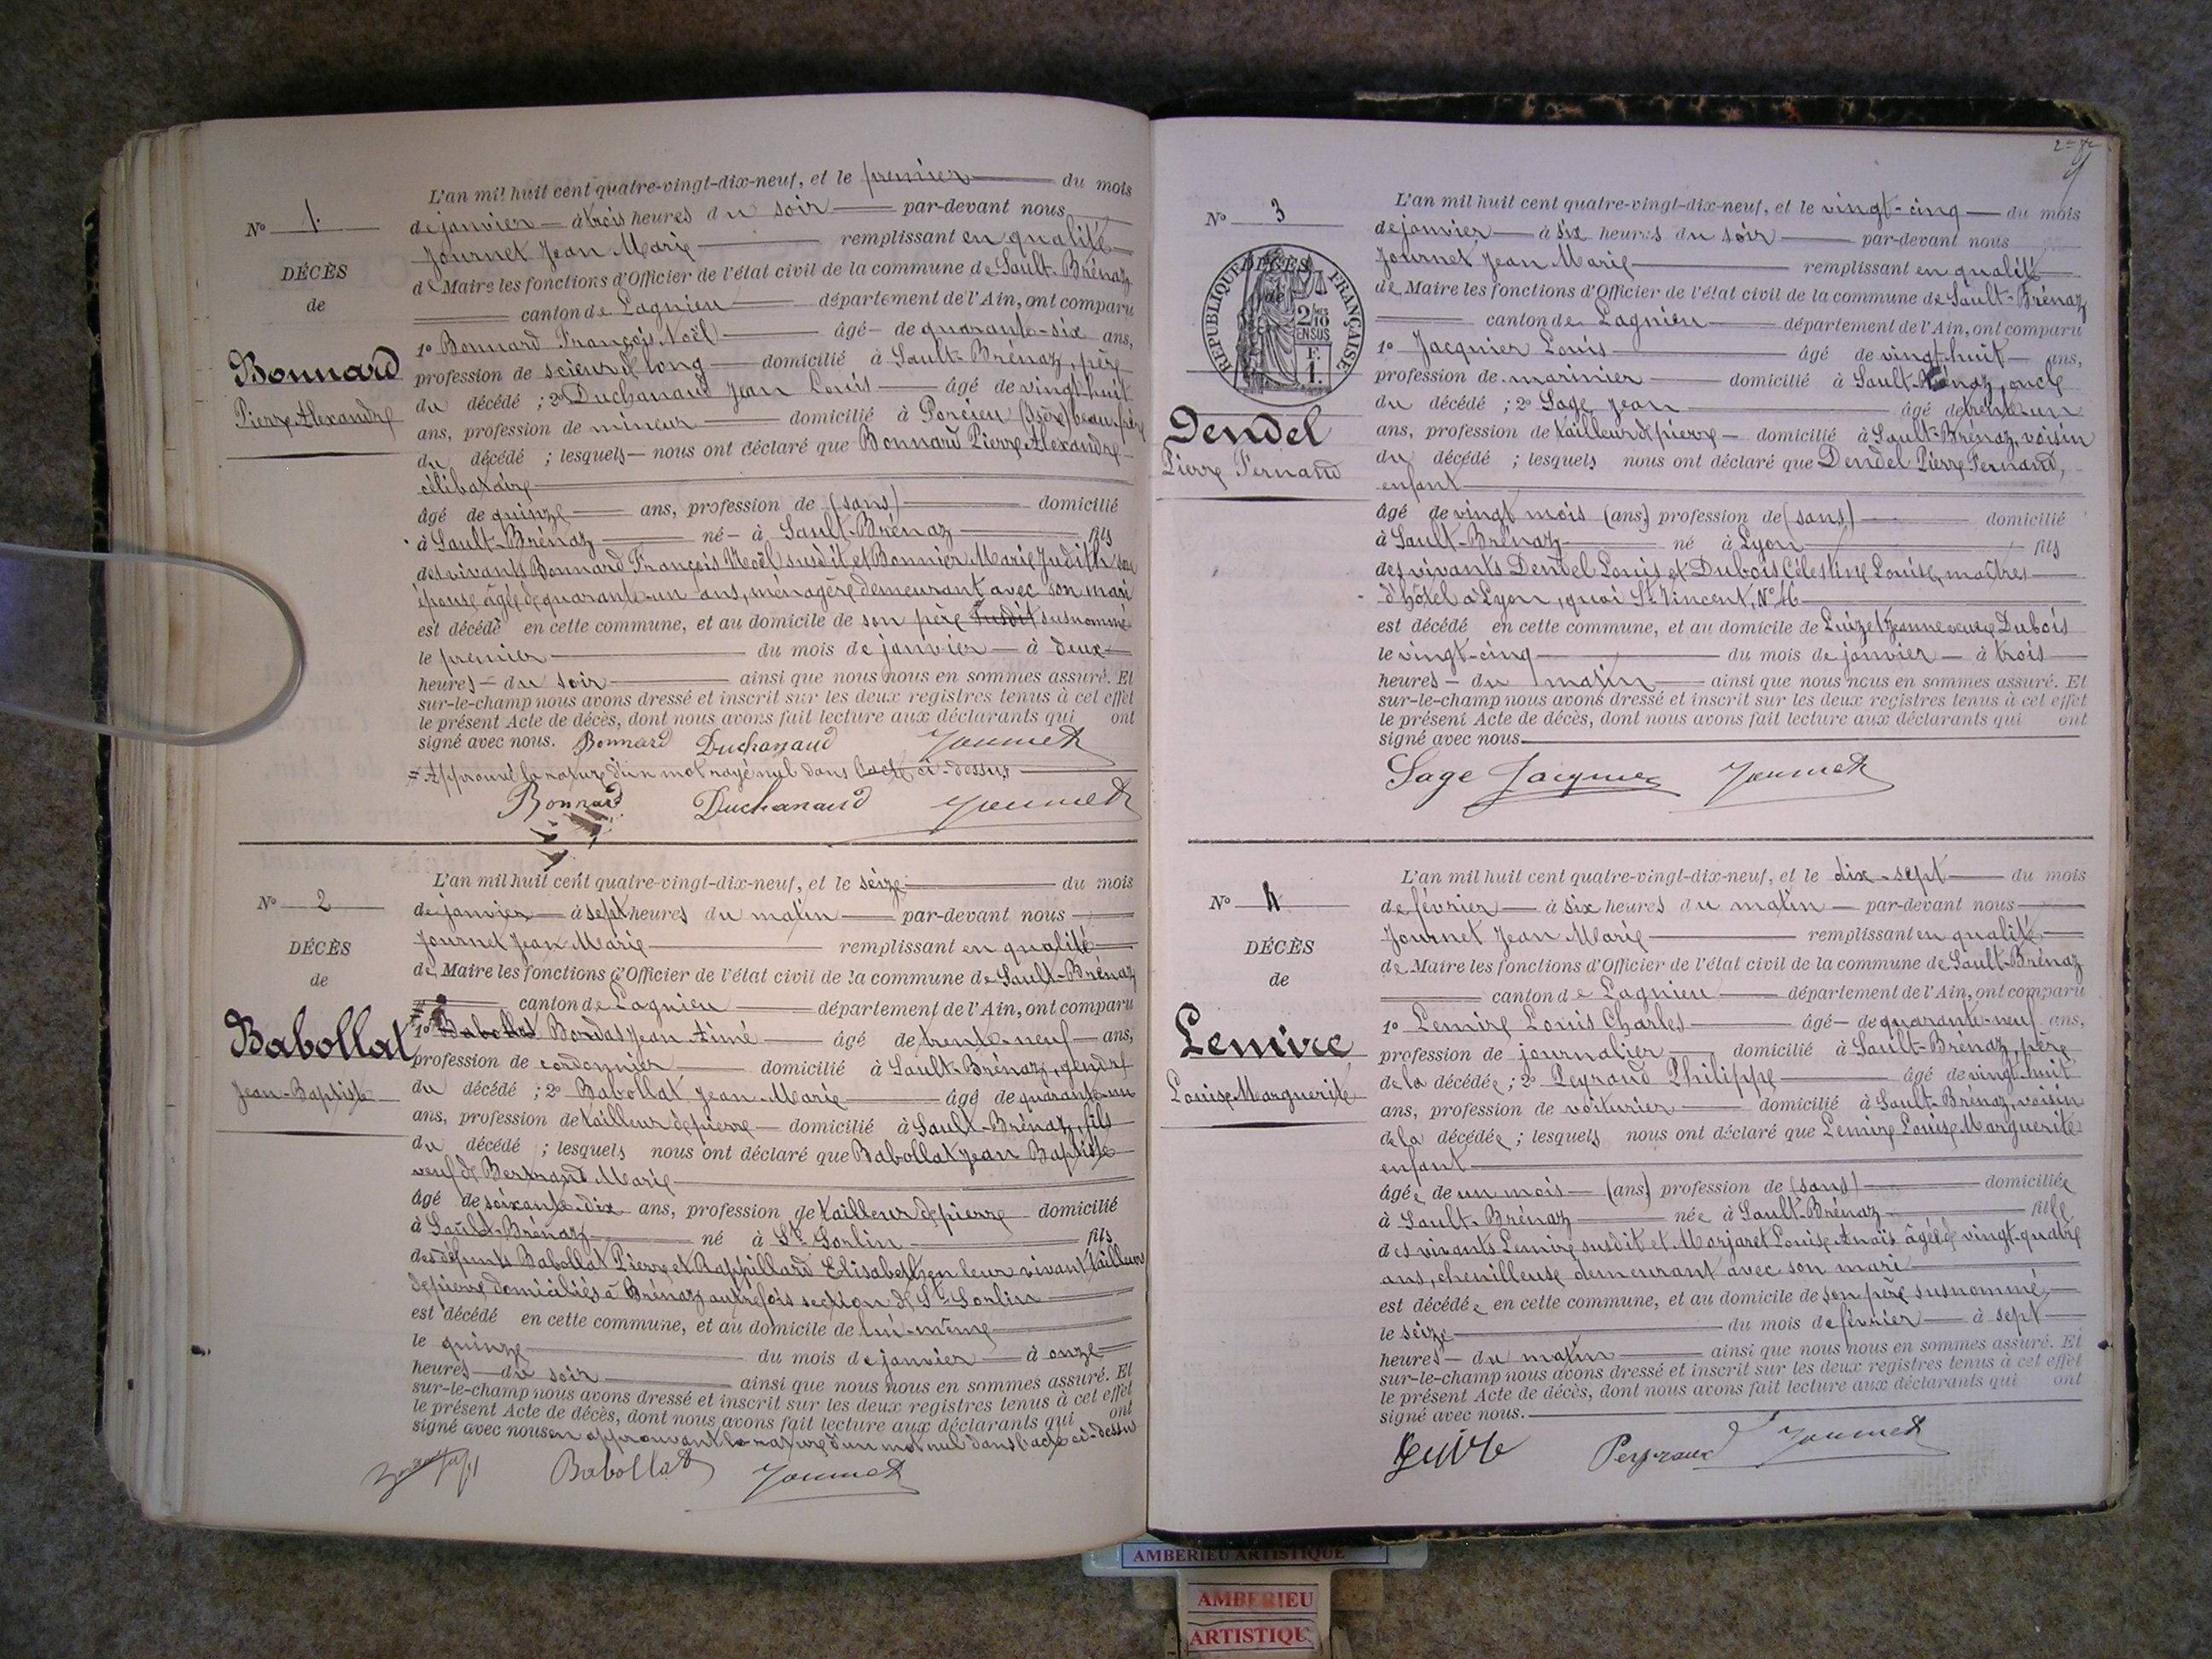 N° 1.
DÉCÈS
de
Bonnard
Pierre Alexandre
L'an mil huit cent quatre-vingt-dix-neuf, et le premier du mois
de janvier à trois heures du soir par-devant nous
Journet Jean Marie remplissant en qualité
de Maire les fonctions d'Officier de l'état civil de la commune de Sault-Brénaz
canton de Lagnieu département de l'Ain, ont comparu
1° Bonnard François Noël âgé de quarante-six ans,
profession de scieur de long domicilié à Sault-Brénaz, père
du décédé ; 2° Duchanaud Jean Louis âgé de vingt huit
ans, profession de mineur domicilié à Porcieu (Isère) beau-frère
du décédé ; lesquels nous ont déclaré que Bonnard Pierre Alexandre
célibataire
âgé de quinze ans, profession de (sans) domicilié
à Sault-Brénaz né à Sault-Brénaz fils
des vivants Bonnard François Noël susdit et Bonnier Marie Judith son
épouse âgée de quarante-un ans, ménagère demeurant avec son mari
est décédé en cette commune, et au domicile de son père susdit susnommé
le premier du mois de janvier à deux
heures du soir ainsi que nous nous en sommes assuré. Et
sur-le-champ nous avons dressé et inscrit sur les deux registres tenus à cet effet
le présent Acte de décès, dont nous avons fait lecture aux déclarants qui ont
signé avec nous. Bonnard Duchanaud Journet
Approuvé la rature d'un mot rayé nul dans l'acte ci-dessus
Bonnard Duchanaud Journet
N° 2
DÉCÈS
de
Babollat
Jean-Baptiste
L'an mil huit cent quatre-vingt-dix-neuf, et le seize du mois
de janvier à sept heures du matin par-devant nous
Journet Jean Marie remplissant en qualité
de Maire les fonctions d'Officier de l'état civil de la commune de Sault-Brénaz
canton de Lagnieu département de l'Ain, ont comparu
1° Babollat Bordas Jean Aimé âgé de trente-neuf ans,
profession de cordonnier domicilié à Sault-Brénaz, gendre
du décédé ; 2° Babollat Jean Marie âgé de quarante-un
ans, profession de tailleur de pierre domicilié à Sault-Brénaz, fils
du décédé ; lesquels nous ont déclaré que Babollat Jean Baptiste
veuf de Bertrand Marie
âgé de soixante-dix ans, profession de tailleur de pierre domicilié
à Sault-Brénaz né à St Sorlin fils
des défunts Babollat Pierre et Rappillard Elisabeth en leur vivant tailleurs
de pierre domiciliés à Brénaz autrefois section de St Sorlin
est décédé en cette commune, et au domicile de lui-même
le quinze du mois de janvier à onze
heures du soir ainsi que nous nous en sommes assuré. Et
sur-le-champ nous avons dressé et inscrit sur les deux registres tenus à cet effet
le présent Acte de décès, dont nous avons fait lecture aux déclarants qui ont
signé avec nous en approuvant la rature d'un mot nul dans l'acte ci-dessus
Babollat Journet
N° 3
DÉCÈS
de
RÉPUBLIQUE FRANÇAISE
2/10 EN SUS
F. 1.
Dendel
Pierre Fernand
L'an mil huit cent quatre-vingt-dix-neuf, et le vingt-cinq du mois
de janvier à six heures du soir par-devant nous
Journet Jean Marie remplissant en qualité
de Maire les fonctions d'Officier de l'état civil de la commune de Sault-Brénaz
canton de Lagnieu département de l'Ain, ont comparu
1° Jacquier Louis âgé de vingt huit ans,
profession de marinier domicilié à Sault-Brénaz, oncle
du décédé ; 2° Sage Jean âgé de trente-un
ans, profession de tailleur de pierre domicilié à Sault-Brénaz, voisin
du décédé ; lesquels nous ont déclaré que Dendel Pierre Fernand,
enfant
âgé de vingt mois (ans) profession de (sans) domicilié
à Sault-Brénaz né à Lyon fils
des vivants Dendel Louis et Dubois Célestine Louise, maîtres
d'hôtel à Lyon, quai St Vincent, N° 46
est décédé en cette commune, et au domicile de Luizet Jeanne veuve Dubois
le vingt-cinq du mois de janvier à trois
heures du matin ainsi que nous nous en sommes assuré. Et
sur-le-champ nous avons dressé et inscrit sur les deux registres tenus à cet effet
le présent Acte de décès, dont nous avons fait lecture aux déclarants qui ont
signé avec nous.
Sage Jacquier Journet
N° 4
DÉCÈS
de
Lemire
Louise Marguerite
L'an mil huit cent quatre-vingt-dix-neuf, et le dix-sept du mois
de février à six heures du matin par-devant nous
Journet Jean Marie remplissant en qualité
de Maire les fonctions d'Officier de l'état civil de la commune de Sault-Brénaz
canton de Lagnieu département de l'Ain, ont comparu
1° Lemire Louis Charles âgé de quarante-neuf ans,
profession de journalier domicilié à Sault-Brénaz, père
de la décédée ; 2° Peyraud Philippe âgé de vingt-huit
ans, profession de voiturier domicilié à Sault-Brénaz, voisin
de la décédée ; lesquels nous ont déclaré que Lemire Louise Marguerite
enfant
âgée de un mois (ans) profession de (sans) domiciliée
à Sault-Brénaz née à Sault-Brénaz fille
des vivants Lemire susdit et Morjaret Louise Anaïs âgée de vingt-quatre
ans, chenilleuse demeurant avec son mari
est décédée en cette commune, et au domicile de son père susnommé,
le seize du mois de février à sept
heures du matin ainsi que nous nous en sommes assuré. Et
sur-le-champ nous avons dressé et inscrit sur les deux registres tenus à cet effet
le présent Acte de décès, dont nous avons fait lecture aux déclarants qui ont
signé avec nous.
Lemire Peyraud Journet
AMBERIEU ARTISTIQUE
AMBERIEU
ARTISTIQUE